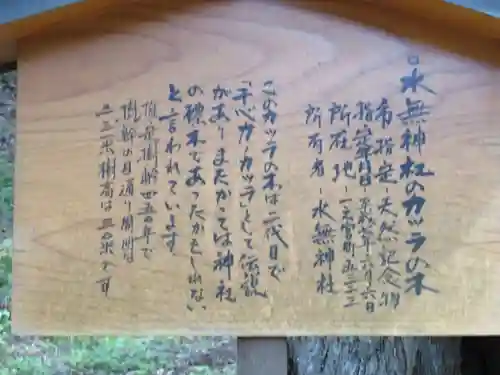 水無神社のカツラの木
市指定－天然記念物
指定年月日－平成七年六月六日
所在地－一之宮町
所有者－水無神社
このカツラの木は二代目で
カツラとして伝説
がありまたかつては神社
の標木であったかもしれない
と言われています
推定樹齢四五〇年で
樹幹の目通り周囲は
樹高は三〇米です